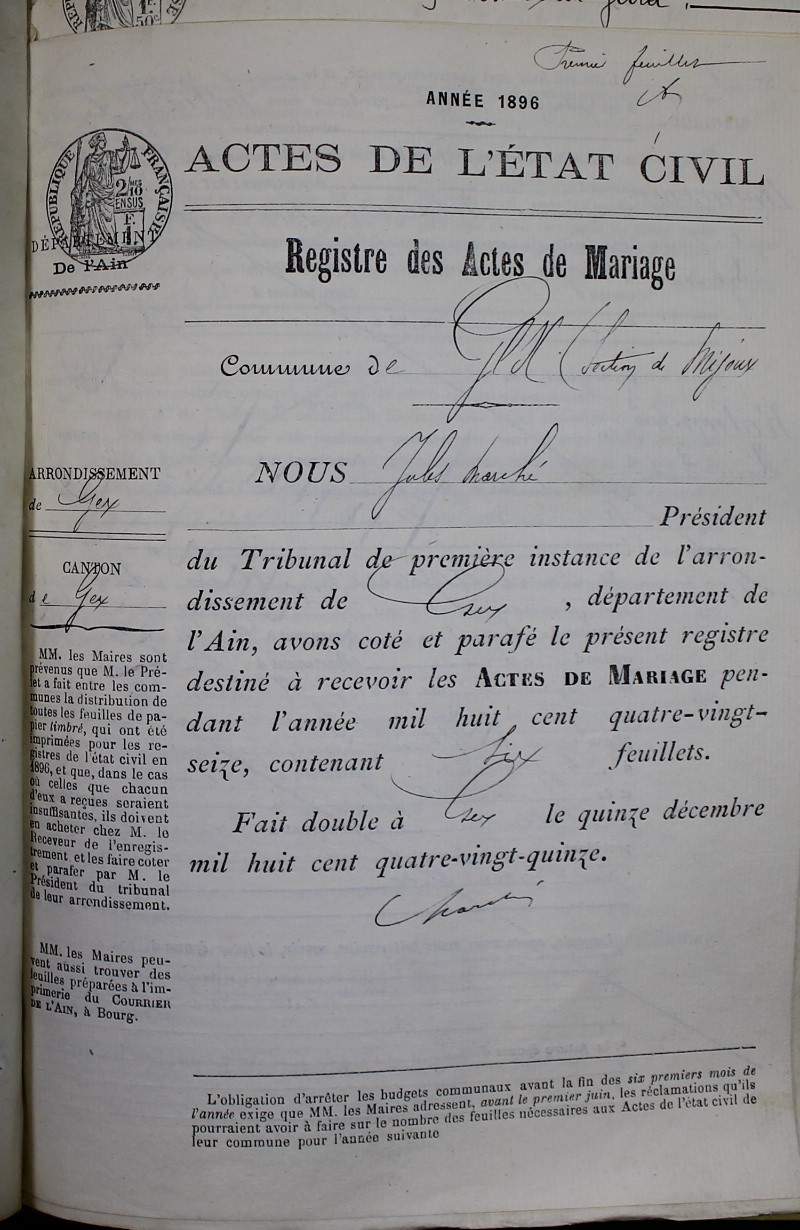 Premier feuillet
ANNÉE 1896
ACTES DE L'ÉTAT CIVIL
RÉPUBLIQUE FRANÇAISE
2/10 EN SUS
1 F.
DÉPARTEMENT
De l'Ain
Registre des Actes de Mariage
Commune de Gex (Section de Mijoux
ARRONDISSEMENT
de Gex
CANTON
de Gex
MM. les Maires sont
prévenus que M. le Pré-
fet a fait entre les com-
munes la distribution de
toutes les feuilles de pa-
pier timbré, qui ont été
imprimées pour les re-
gistres de l'état civil en
1896, et que, dans le cas
où celles que chacun
d'eux a reçues seraient
insuffisantes, ils doivent
en acheter chez M. le
Receveur de l'enregis-
trement et les faire coter
et parafer par M. le
Président du tribunal
de leur arrondissement.
MM. les Maires peu-
vent aussi trouver des
feuilles préparées à l'im-
primerie du COURRIER
DE L'AIN, à Bourg.
NOUS Jules Marché
Président
du Tribunal de première instance de l'arron-
dissement de Gex, département de
l'Ain, avons coté et parafé le présent registre
destiné à recevoir les ACTES DE MARIAGE pen-
dant l'année mil huit cent quatre-vingt-
seize, contenant six feuillets.
Fait double à Gex le quinze décembre
mil huit cent quatre-vingt-quinze.
L'obligation d'arrêter les budgets communaux avant la fin des six premiers mois de
l'année exige que MM. les Maires adressent, avant le premier juin, les réclamations qu'ils
pourraient avoir à faire sur le nombre des feuilles nécessaires aux Actes de l'état civil de
leur commune pour l'année suivante